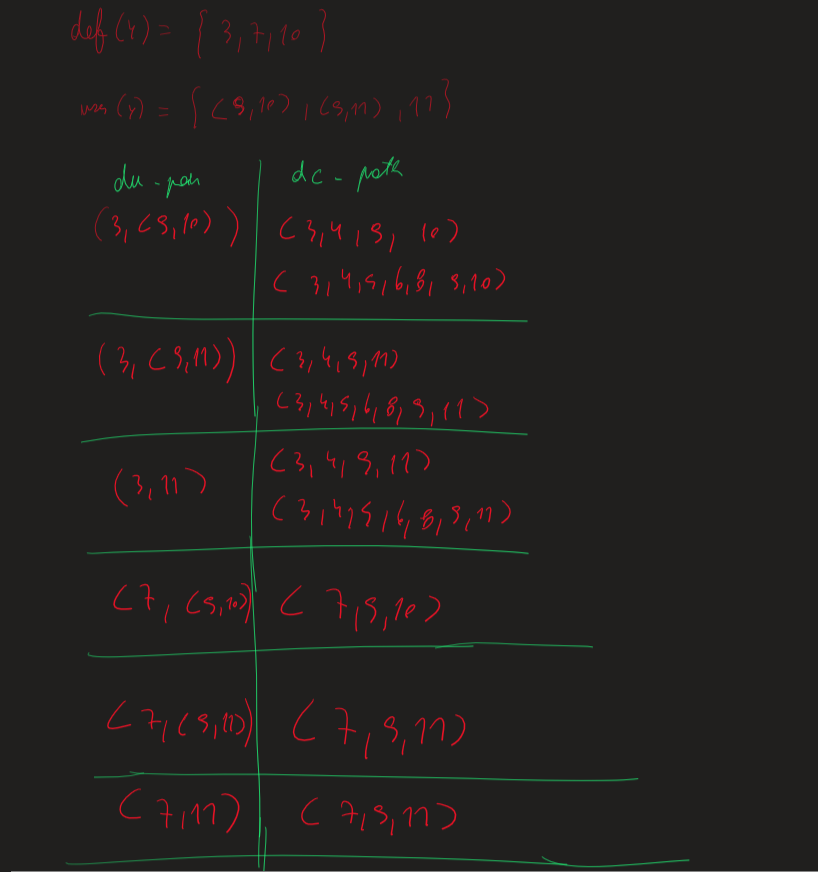 def(y) = { 3, 7, 10 }
use(y) = { (9,10), (9,11), 11 }
du-pair dc-path
(3, (9,10)) (3,4,9,10)
(3,4,5,6,8,9,10)
(3, (9,11)) (3,4,9,11)
(3,4,5,6,8,9,11)
(3,11) (3,4,9,11)
(3,4,5,6,8,9,11)
(7, (9,10)) (7,9,10)
(7, (9,11)) (7,9,11)
(7,11) (7,9,11)